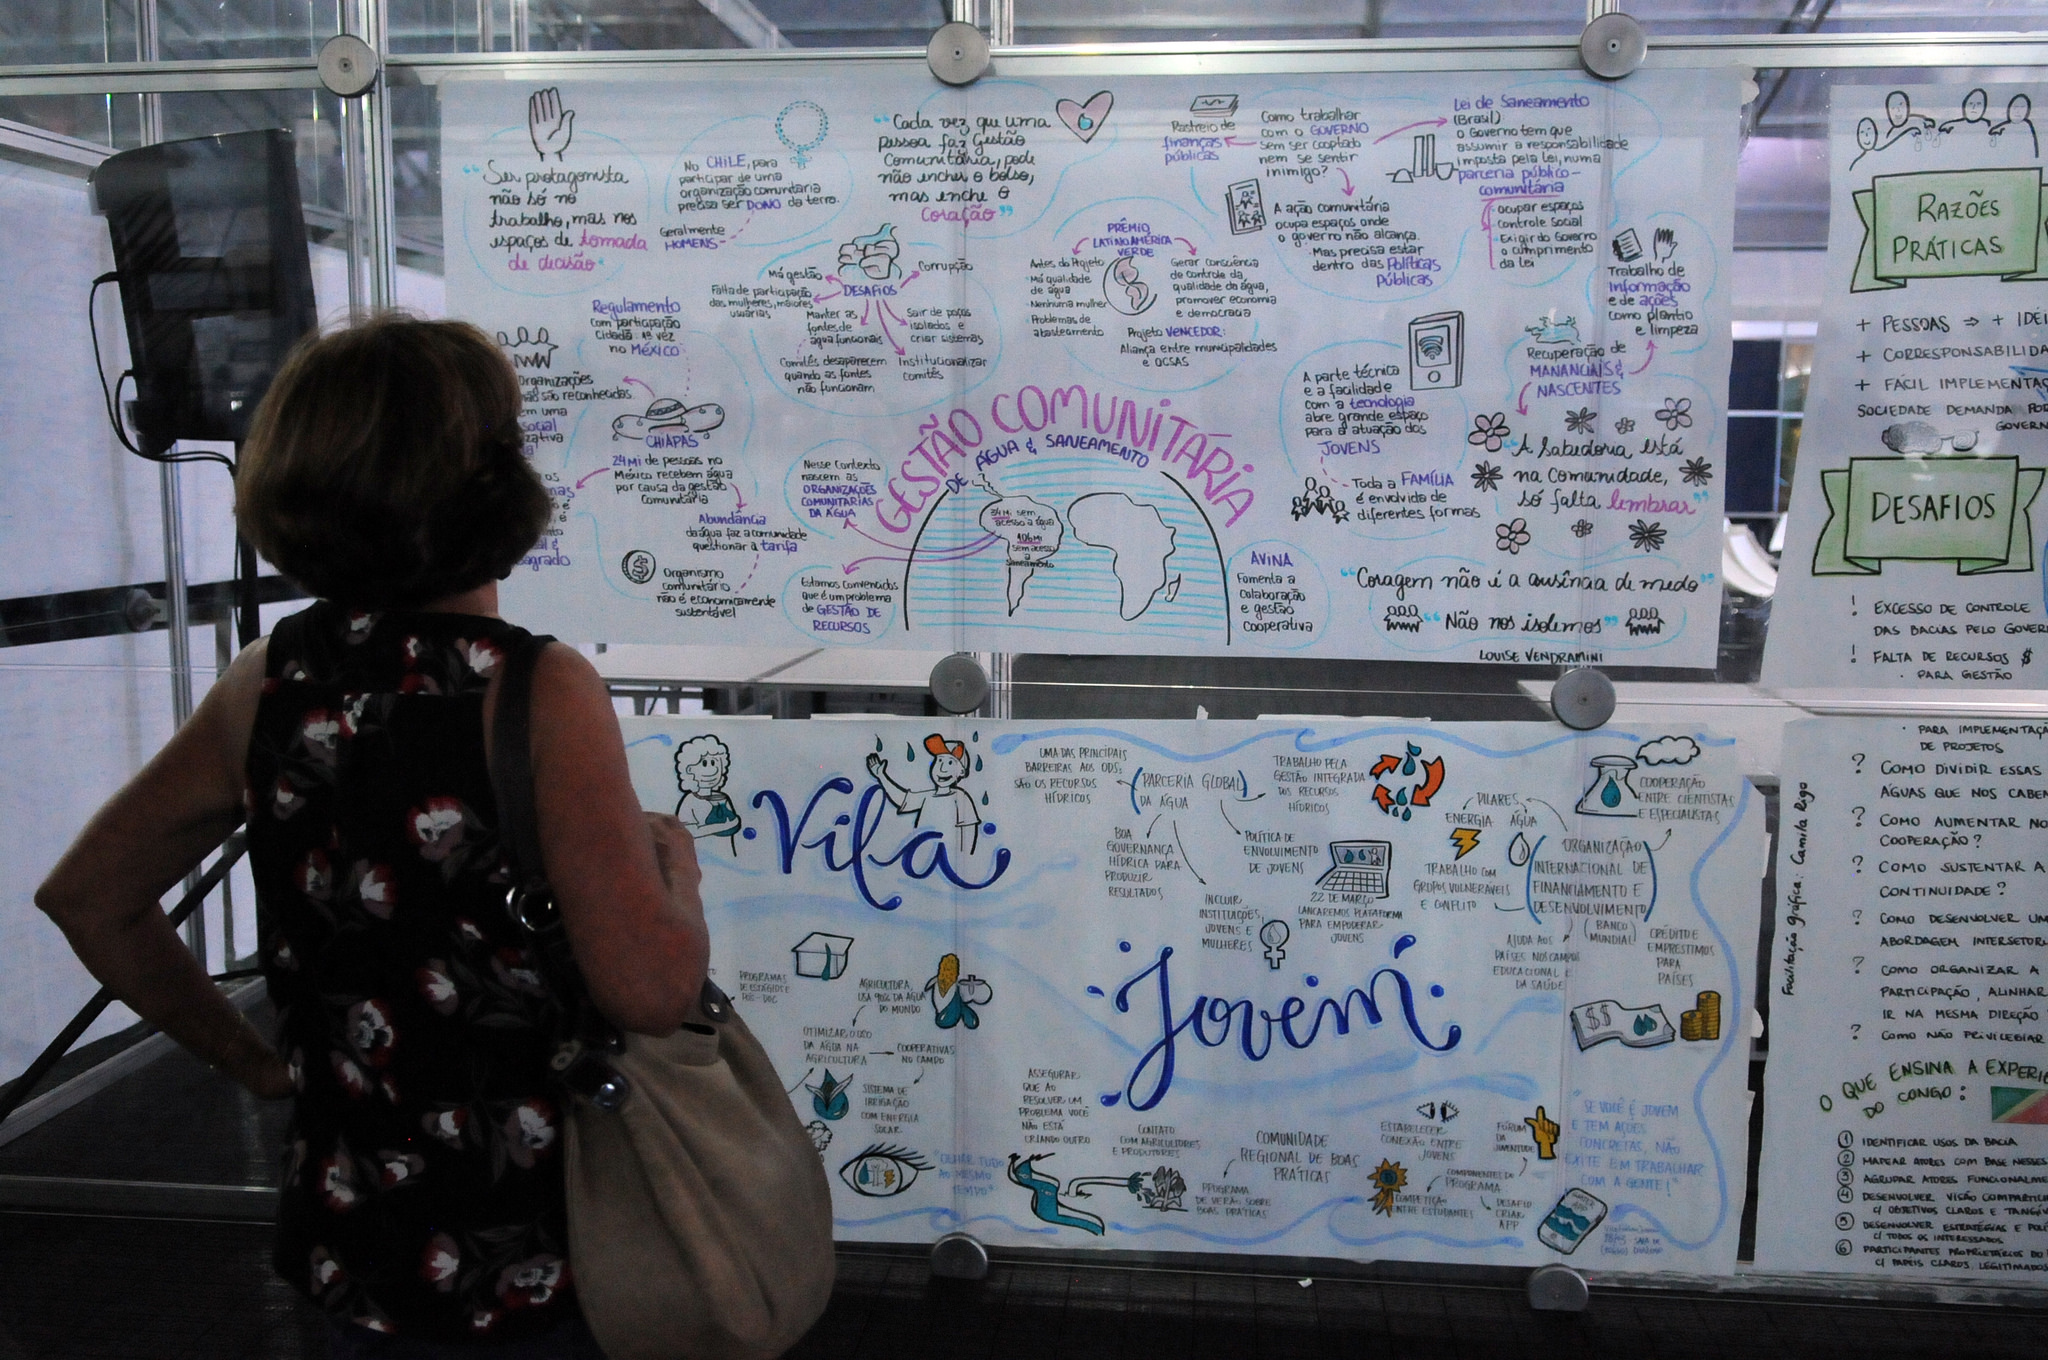 "Ser protagonista
não só no
trabalho, mas nos
espaços de tomada
de decisão"
No CHILE, para
participar de uma
organização comunitária
precisa ser DONO da terra.
Geralmente
HOMENS
"Cada vez que uma
pessoa faz Gestão
Comunitária, pode
não encher o bolso,
mas enche o
Coração"
Rastreio de
finanças
públicas
Como trabalhar
com o GOVERNO
sem ser cooptado
nem se sentir
inimigo?
Lei de Saneamento
(Brasil)
o Governo tem que
assumir a responsabilidade
imposta pela lei, numa
parceria público-
comunitária
· ocupar espaços
· controle social
· Exigir do Governo
o cumprimento
da lei
A ação comunitária
ocupa espaços onde
o governo não alcança.
Mas precisa estar
dentro das Políticas
Públicas
Trabalho de
Informação
e de ações
como plantio
e limpeza
Regulamento
com participação
cidadã: 1ª vez
no México
DESAFIOS
Má gestão
Corrupção
Falta de participação
das mulheres, maiores
usuárias
Manter as
fontes de
água funcionais
Comitês desaparecem
quando as fontes
não funcionam
Sair de poços
isolados e
criar sistemas
Institucionalizar
Comitês
PRÊMIO
LATINOAMÉRICA
VERDE
Antes do Projeto
· Má qualidade
de água
· Nenhuma mulher
· Problemas de
abastecimento
Gerar consciência
de controle da
qualidade da água,
promover economia
e democracia
Projeto VENCEDOR:
Aliança entre municipalidades
e OCSAS
A parte técnica
e a facilidade
com a tecnologia
abre grande espaço
para a atuação dos
JOVENS
Toda a FAMÍLIA
é envolvida de
diferentes formas
Recuperação de
MANANCIAIS &
NASCENTES
"A Sabedoria está
na Comunidade,
só falta lembrar"
Organizações
não são reconhecidas
em uma
social
CHIAPAS
24Mi de pessoas no
México recebem água
por causa da gestão
Comunitária
Abundância
da água faz a comunidade
questionar a tarifa
Organismo
comunitário
não é economicamente
sustentável
sagrado
Nesse Contexto
nascem as
ORGANIZAÇÕES
COMUNITÁRIAS
DA ÁGUA
Estamos convencidos
que é um problema
de GESTÃO DE
RECURSOS
GESTÃO COMUNITÁRIA
DE ÁGUA & SANEAMENTO
34Mi sem
acesso a água
106Mi
sem acesso
a
Saneamento
AVINA
Fomenta a
Colaboração
e gestão
Cooperativa
"Coragem não é a ausência de medo"
"Não nos isolemos"
LOUISE VENDRAMINI
RAZÕES
PRÁTICAS
+ PESSOAS ⇒ + IDEI
+ CORRESPONSABILIDA
+ FÁCIL IMPLEMENTAÇ
SOCIEDADE DEMANDA POD
GOVERN
DESAFIOS
! EXCESSO DE CONTROLE
DAS BACIAS PELO GOVER
! FALTA DE RECURSOS $
PARA GESTÃO
Vila
Jovem
UMA DAS PRINCIPAIS
BARREIRAS AOS ODS:
SÃO OS RECURSOS
HÍDRICOS
PARCERIA GLOBAL
DA ÁGUA
TRABALHO PELA
GESTÃO INTEGRADA
DOS RECURSOS
HÍDRICOS
BOA
GOVERNANÇA
HÍDRICA PARA
PRODUZIR
RESULTADOS
POLÍTICA DE
ENVOLVIMENTO
DE JOVENS
INCLUIR
INSTITUIÇÕES,
JOVENS E
MULHERES
22 DE MARÇO
LANÇAREMOS PLATAFORMA
PARA EMPODERAR
JOVENS
PILARES
ENERGIA
ÁGUA
TRABALHO COM
GRUPOS VULNERÁVEIS
E CONFLITO
COOPERAÇÃO
ENTRE CIENTISTAS
E ESPECIALISTAS
ORGANIZAÇÃO
INTERNACIONAL DE
FINANCIAMENTO E
DESENVOLVIMENTO
(BANCO
MUNDIAL)
AJUDA AOS
PAÍSES NOS CAMPOS
EDUCACIONAL E
DA SAÚDE
CRÉDITO E
EMPRÉSTIMOS
PARA
PAÍSES
PROGRAMAS
DE ESTÁGIOS E
PÓS-DOC
AGRICULTURA,
USA 90% DA ÁGUA
DO MUNDO
OTIMIZAR O USO
DA ÁGUA NA
AGRICULTURA
COOPERATIVAS
NO CAMPO
SISTEMA DE
IRRIGAÇÃO
COM ENERGIA
SOLAR
"OLHAR TUDO
AO MESMO
TEMPO"
ASSEGURAR
QUE AO
RESOLVER UM
PROBLEMA VOCÊ
NÃO ESTÁ
CRIANDO OUTRO
CONTATO
COM AGRICULTORES
E PRODUTORES
COMUNIDADE
REGIONAL DE BOAS
PRÁTICAS
PROGRAMA
DE VERÃO SOBRE
BOAS PRÁTICAS
ESTABELECER
CONEXÃO ENTRE
JOVENS
FÓRUM
DA
JUVENTUDE
COMPONENTES DO
PROGRAMA
COMPETIÇÃO
ENTRE ESTUDANTES
DESAFIO
CRIAR
APP
"SE VOCÊ É JOVEM
E TEM AÇÕES
CONCRETAS, NÃO
EXITE EM TRABALHAR
COM A GENTE!"
Facilitação gráfica: Camila Rigo
· PARA IMPLEMENTAÇ
DE PROJETOS
? COMO DIVIDIR ESSAS
ÁGUAS QUE NOS CABEM
? COMO AUMENTAR NO
COOPERAÇÃO?
? COMO SUSTENTAR A
CONTINUIDADE?
? COMO DESENVOLVER UM
ABORDAGEM INTERSETORI
? COMO ORGANIZAR A
PARTICIPAÇÃO, ALINHAR
IR NA MESMA DIREÇÃO
? COMO NÃO PRIVILEGIAR
O QUE ENSINA A EXPERI
DO CONGO:
1 IDENTIFICAR USOS DA BACIA
2 MAPEAR ATORES COM BASE NESSES
3 AGRUPAR ATORES FUNCIONALM
4 DESENVOLVER VISÃO COMPARTIL
C/ OBJETIVOS CLAROS E TANGÍV
5 DESENVOLVER ESTRATÉGIAS E POL
C/ TODOS OS INTERESSADOS
6 PARTICIPANTES PROPRIETÁRIOS DO
C/ PAPÉIS CLAROS, LEGITIMADOS